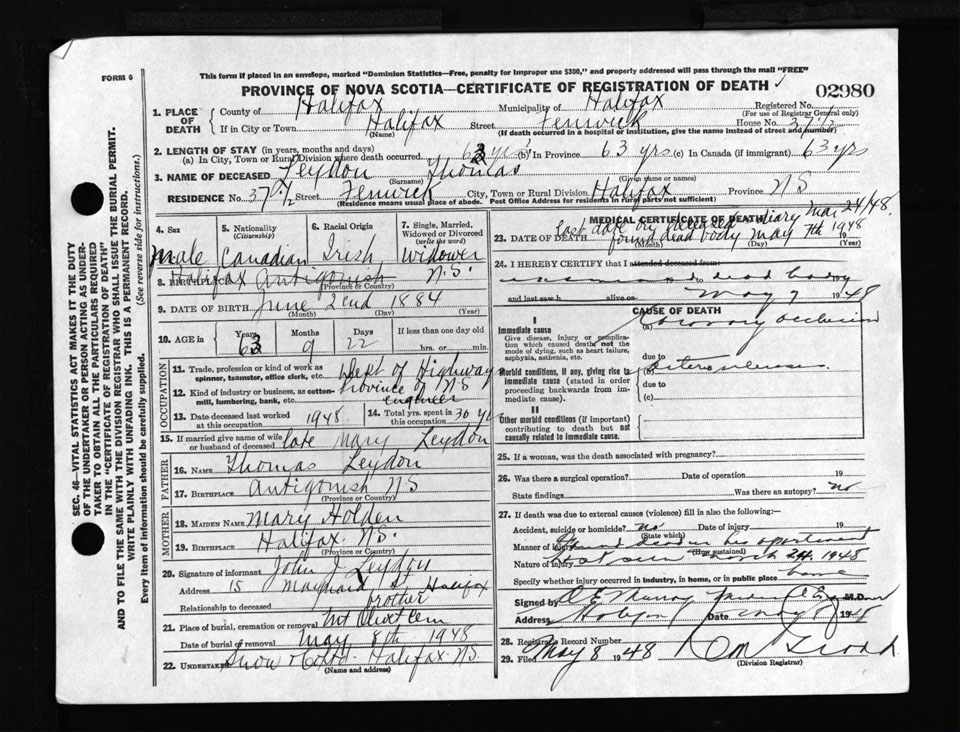 This form if placed in an envelope, marked "Dominion Statistics—Free, penalty for improper use $300," and properly addressed will pass through the mail "FREE"
FORM 6
PROVINCE OF NOVA SCOTIA—CERTIFICATE OF REGISTRATION OF DEATH
02980
1. PLACE OF DEATH County of Halifax Municipality of Halifax Registered No. (For use of Registrar General only)
If in City or Town Halifax (Name) Street Fenwick House No. 37½
(If death occurred in a hospital or institution, give the name instead of street and number)
2. LENGTH OF STAY (in years, months and days)
(a) In City, Town or Rural Division where death occurred 63 yrs (b) In Province 63 yrs (c) In Canada (if immigrant) 63 yrs
3. NAME OF DECEASED Leydon Thomas
(Surname) (Given name or names)
RESIDENCE No. 37½ Street Fenwick City, Town or Rural Division Halifax Province N S
(Residence means usual place of abode. Post Office Address for residents in rural parts not sufficient)
4. Sex Male
5. Nationality (Citizenship) Canadian
6. Racial Origin Irish
7. Single, Married, Widowed or Divorced (write the word) Widower
8. BIRTHPLACE Halifax Antigonish N.S.
(Province or Country)
9. DATE OF BIRTH June 22nd 1884
(Month) (Day) (Year)
10. AGE in Years 63 Months 9 Days 22 If less than one day old hrs. or min.
OCCUPATION
11. Trade, profession or kind of work as spinner, teamster, office clerk, etc. Dept of Highway
12. Kind of industry or business, as cotton-mill, lumbering, bank, etc. Province of N S engineer
13. Date deceased last worked at this occupation 1948
14. Total yrs. spent in this occupation 30 yrs
15. If married give name of wife or husband of deceased late Mary Leydon
FATHER
16. NAME Thomas Leydon
17. BIRTHPLACE Antigonish N S
(Province or Country)
MOTHER
18. MAIDEN NAME Mary Holden
19. BIRTHPLACE Halifax N.S.
(Province or Country)
20. Signature of informant John J Leydon
Address 15 Maynard St Halifax
Relationship to deceased brother
21. Place of burial, cremation or removal Mt Olivet Cem
Date of burial or removal May 8th 1948
22. UNDERTAKER Snow & Co Ltd. Halifax N.S.
(Name and address)
MEDICAL CERTIFICATE OF DEATH
last date on diary Mar 24/48.
23. DATE OF DEATH found dead body May 7th 1948
(Month) (Day) (Year)
24. I HEREBY CERTIFY that I attended deceased from
dead body
and last saw h alive on May 7 1948
CAUSE OF DEATH
I
Immediate cause
Give disease, injury or complication which caused death not the mode of dying, such as heart failure, asphyxia, asthenia, etc.
(a) Coronary occlusion
due to
Morbid conditions, if any, giving rise to immediate cause (stated in order proceeding backwards from immediate cause).
(b)
due to
(c)
II
Other morbid conditions (if important) contributing to death but not causally related to immediate cause.
25. If a woman, was the death associated with pregnancy?
26. Was there a surgical operation? Date of operation 19
State findings Was there an autopsy? no
27. If death was due to external causes (violence) fill in also the following:—
Accident, suicide or homicide? No Date of injury 19
(State which)
Manner of injury Found dead in his apartment
(How sustained)
Nature of injury last seen March 24, 1948
Specify whether injury occurred in industry, in home, or in public place home
Signed by D E Murray M.D.
Address Date May 8 1948
28. Registrar's Record Number
29. Filed May 8 1948
(Division Registrar)
SEC. 46—VITAL STATISTICS ACT MAKES IT THE DUTY OF THE UNDERTAKER OR PERSON ACTING AS UNDERTAKER TO OBTAIN ALL THE PARTICULARS REQUIRED IN THE "CERTIFICATE OF REGISTRATION OF DEATH"
AND TO FILE THE SAME WITH THE DIVISION REGISTRAR WHO SHALL ISSUE THE BURIAL PERMIT.
WRITE PLAINLY WITH UNFADING INK. THIS IS A PERMANENT RECORD.
Every item of information should be carefully supplied. (See reverse side for instructions.)